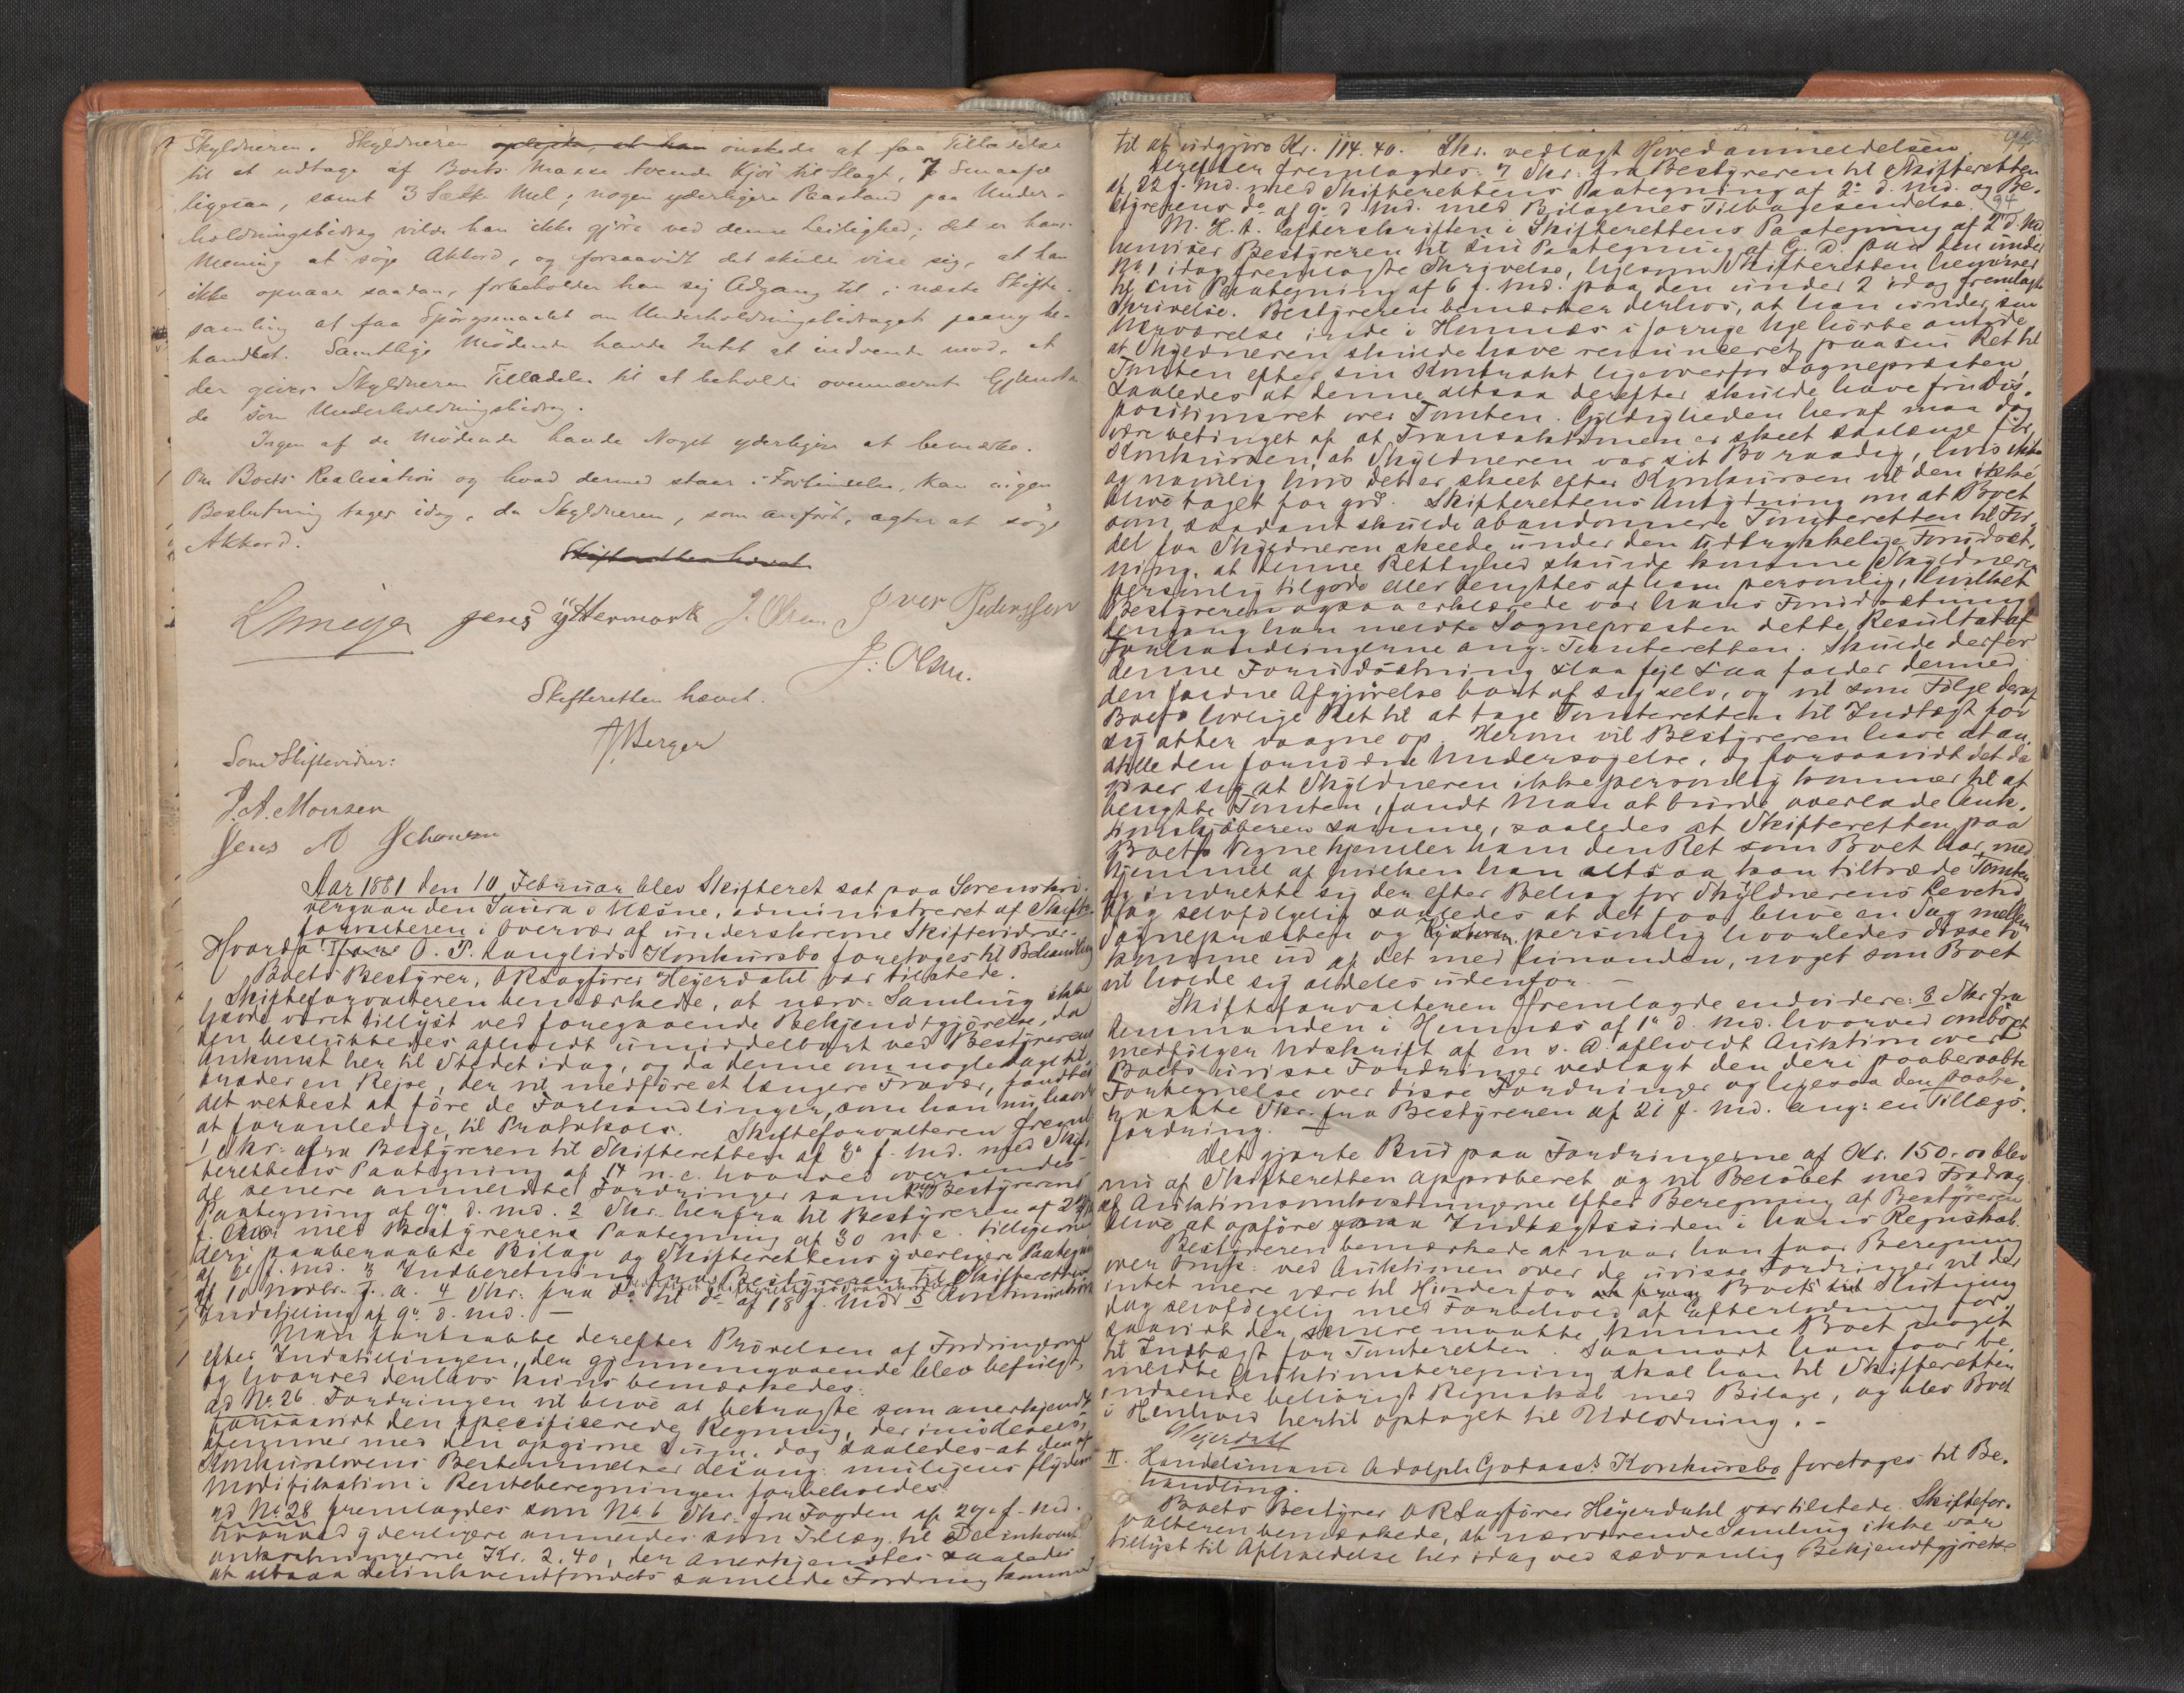 Skyldneren. Skyldneren oplyste, at han ønskede at faa Tilladelse
til at udtage af Boets Masse tvende Kjør til Slagt, 7 Smaafæ
ligesaa, samt 3 Sække Mel; nogen yderligere Paastand paa Under-
holdningsbidrag vilde han ikke gjøre ved denne Leilighed; det er hans
Mening at søge Akkord, og forsaavidt det skulde vise sig, at han
ikke opnaar saadan, forbeholder han sig Adgang til i næste Skifte-
samling at faa Spørgsmaalet om Underholdningsbidraget paany be-
handlet. Samtlige Mødende havde Intet at indvende mod, at
der gives Skyldneren Tilladelse til at beholde ovennævnte Gjenstan-
de som Underholdningsbidrag.
Ingen af de Mødende havde Noget yderligere at bemærke.
Om Boets Realisation og hvad dermed staar i Forbindelse, kan ingen
Beslutning tages idag, da Skyldneren, som anført, agter at søge
Akkord.
Skifteretten hævet
Jens Yttermork J. Olsen Iver Pederssen
J. Olsen.
Skifteretten hævet.
Berger
Som Skiftevidner:
J. A. Monsen
Jens A Johansen
Aar 1881 den 10 Februar blev Skifteret sat paa Sorenskri-
vergaarden Saura i Næsne, administreret af Skifte-
forvalteren i Overvær af underskrevne Skiftevidner.
Hvorda O. P. Langlids Konkursbo foretoges til Behandling
Boets Bestyrer, ORSagfører Heyerdahl var tilstede.
Skifteforvalteren bemærkede, at nærv. Samling ikke
havde været tillyst ved foregaaende Bekjendtgjørelse, da
den besluttedes afholdt umiddelbart ved Bestyrerens
Ankomst her til Stedet idag, og da denne om nogle Dage til-
træder en Rejse, der vil medføre et længere Fravær, fandtes
det rettest at føre de Forhandlinger, som han nu havde
at foranledige, til Protokols. Skifteforvalteren freml.
1 Skr. fra Bestyreren til Skifteretten af 3 f. Md. med Skif-
terettens Paategning af 14 n. e. hvorved oversendes
de senere anmeldte Fordringer samt Bestyrerens
Paategning af 9 d. Md. 2 Skr. herfra til Bestyreren af
f. Md. med Bestyrerens Paategning af 30 n. e. tilligemed
deri paaberaabte Bilage og Skifterettens yderligere Paategning
af 6 f. Md. 3 Indberetning fra Bestyreren til Skifteretten
af 10 Novbr. f. A. 4 Skr. fra do til do af 18 f. Md. 5
Indstilling af 9 d. Md. —
Man foretog derefter Prøvelsen af Fordringerne
efter Indstillingen, der gjennemgaaende blev befulgt,
og hvorved denhos kuns bemærkedes:
ad No. 26 Fordringen vil blive at betragte som anerkjendt
forsaavidt den specificerede Regning, der imødesees,
stemmer med den opgivne Sum, dog saaledes at den af
Konkurslovens Bestemmelser desang. muligens flydende
Modifikation i Renteberegningen forbeholdes.
ad No 28 fremlagdes som No 6 Skr. fra Fogden af 29 f. Md.
hvorved yderligere anmeldes som Tillæg til Delinkvent
omkostningerne Kr. 2,40, der anerkjendtes saaledes
at altsaa Delinkventfondets samlede Fordring kommer
94
til at udgjøre Kr. 114.40. Skr. vedlagt Hovedanmeldelsen.
Derefter fremlagdes: 7 Skr. fra Bestyreren til Skifteretten
af 22 f. Md. med Skifterettens Paategning af 2 d. Md. og Be-
styrerens do af 9 d Md. med Bilagenes Tilbagesendelse. 94
M. H. t. Efterskriften i Skifterettens Paategning af 2 d. Md.
henviser Bestyreren til sin Paategning af G. D. paa den under
No 1 idag fremlagte Skrivelse, ligesom Skifteretten henviser
til sin Paategning af 6 f. Md. paa den under 2 idag fremlagte
Skrivelse. Bestyreren bemærker derhos, at han under sin
Nærværelse inde i Hemnæs i forrige Uge hørte antyde
at Skyldneren skulde have renunceret paa sin Ret til
Tomten efter sin Kontrakt ligeoverfor Sognepræsten,
saaledes at denne altsaa derefter skulde have fri Dis-
positionsret over Tomten. Gyldigheden heraf maa dog
være betinget af at Transaktionen er skeet saalænge før
Konkursen, at Skyldneren var sit Bo raadig, hvis ikke
og navnlig hvis det er skeet efter Konkursen vil den ikke
blive taget for god. Skifterettens Antydning om at Boet
som saadant skulde abandonnere Tomteretten til For-
del for Skyldneren skeede under den udtrykkelige Forudsæt-
ning, at denne Rettighed skulde komme Skyldneren
personlig tilgode eller benyttes af ham personlig, hvilket
Bestyreren ogsaa erklærede var hans Forudsætning
dengang han meldte Sognepræsten dette Resultat af
Forhandlingerne ang. Tomteretten. Skulde derfor
denne Forudsætning slaa fejl saa falder dermed
den fattede Afgjørelse bort af sig selv, og vil som Følge deraf
Boets lovlige Ret til at tage Tomteretten til Indtægt for
sig atter vaagne op. Herom vil Bestyreren have at an-
stille den fornødne Undersøgelse, og forsaavidt det da
viser sig at Skyldneren ikke personlig kommer til at
benytte Tomten, fandt man at burde overlade Auk-
tionskjøberen samme, saaledes at Skifteretten paa
Boets Vegne hjemler ham den Ret som Boet har, med
Hjemmel af hvilken han altsaa kan tiltræde Tomten
og indrette sig der efter Behag for Skyldnerens Levetid
dog selvfølgelig saaledes at det faar blive en Sag mellem
Sognepræsten og Kjøberen personlig hvorledes disse to
komme ud af det med hinanden, noget som Boet
vil holde sig aldeles udenfor. —
Skifteforvalteren fremlagde endvidere: 8 Skr. fra
Lensmanden i Hemnæs af 1 d. Md. hvorved ombøgt
medfølger Udskrift af en s. D. afholdt Auktion over
Boets uvisse Fordringer vedlagt den deri paaberaabte
Fortegnelse over disse Fordringer og ligesaa den paabe-
raabte Skr. fra Bestyreren af 21 f. Md. ang. en Tillægs-
fordring. —
Det gjorte Bud paa Fordringerne af Kr. 150.00 blev
nu af Skifteretten approberet og vil Beløbet med Fradrag
af Auktionsomkostningerne efter Beregning af Bestyreren
blive at opføre paa Indtægtssiden i hans Regnskab.
Bestyreren bemærkede at naar han faar Beregning
over Omk. ved Auktionen over de uvisse Fordringer vil der
intet mere være til Hinder for Boets Slutning
dog selvfølgelig med Forbehold af Efterlodning for-
saavidt der senere maatte komme Boet noget
til Indtægt for Tomteretten. Saasnart han faar be-
meldte Auktionsberegning skal han til Skifteretten
indsende behørigt Regnskab med Bilage, og blev Boet
i Henhold hertil optaget til Udlodning. —
Heyerdahl
II. Handelsmand Adolph Gotaas's Konkursbo foretoges til Be-
handling.
Boets Bestyrer ORSagfører Heyerdahl var tilstede. Skiftefor-
valteren bemærkede, at nærværende Samling ikke var
tillyst til Afholdelse her idag ved sædvanlig Bekjendtgjørelse